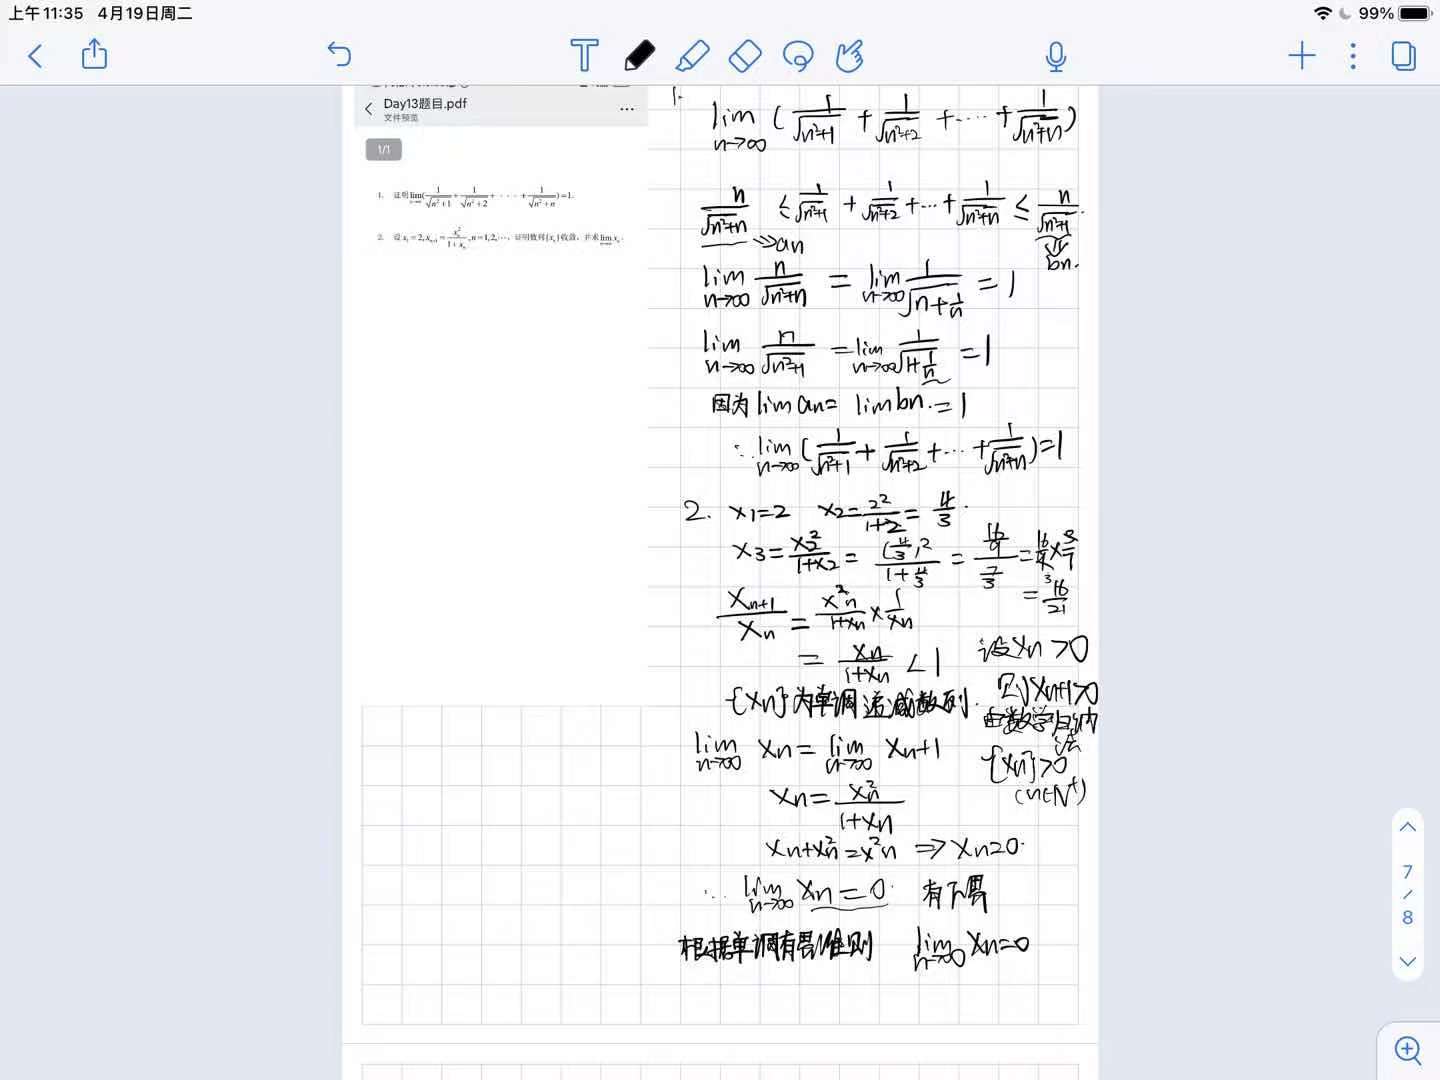 上午11:35 4月19日周二
99%
Day13题目.pdf
文件预览
...
1/1
1. 证明lim(1/√(n²+1) + 1/√(n²+2) + · · · + 1/√(n²+n)) = 1.
2. 设 x₁ = 2, xₙ₊₁ = xₙ²/(1+xₙ), n = 1, 2, ⋯, 证明数列{xₙ}收敛, 并求 lim xₙ.
1.
lim n→∞ (1/√(n²+1) + 1/√(n²+2) + ···· + 1/√(n²+n))
n/√(n²+n) ≤ 1/√(n²+1) + 1/√(n²+2) + ··· + 1/√(n²+n) ≤ n/√(n²+1).
⇒ an
bn.
lim n→∞ n/√(n²+n) = lim n→∞ 1/√(n+1/n) = 1
lim n→∞ n/√(n²+1) = lim n→∞ 1/√(1+1/n) = 1
因为 lim an = lim bn. = 1
∴ lim n→∞ (1/√(n²+1) + 1/√(n²+2) + ··· + 1/√(n²+n)) = 1
2. x₁=2 x₂ = 2²/(1+2) = 4/3.
x₃ = x₂²/(1+x₂) = (4/3)²/(1+4/3) = (16/9)/(7/3) = 16/9 × 3/7
= 16/21
xₙ₊₁/xₙ = x²ₙ/(1+xₙ) × 1/xₙ
= xₙ/(1+xₙ) < 1
{xₙ}为单调递减数列.
设 xₙ > 0
则 xₙ₊₁ > 0
由数学归纳法
{xₙ} > 0
(n∈N⁺)
lim n→∞ xₙ = lim n→∞ xₙ₊₁
xₙ = xₙ²/(1+xₙ)
xₙ + xₙ² = x²ₙ ⇒ xₙ=0.
∴ lim n→∞ xₙ = 0. 有下界
根据单调有界准则 lim n→∞ xₙ = 0
7
/
8